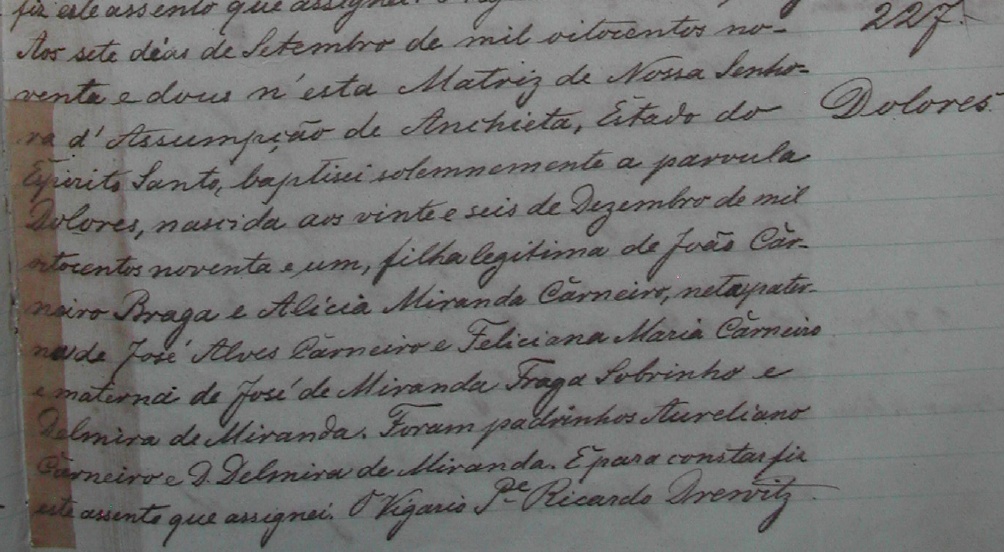 fiz este assento que assignei. O
227.
Aos sete dias de Setembro de mil oitocentos no-
venta e dous n'esta Matriz de Nossa Senho-
Dolores.
ra d'Assumpção de Anchieta, Estado do
Espirito Santo, baptisei solemnemente a parvula
Dolores, nascida aos vinte e seis de Dezembro de mil
oitocentos noventa e um, filha legitima de João Car-
neiro Braga e Alicia Miranda Carneiro, neta pater-
na de José Alves Carneiro e Feliciana Maria Carneiro
e materna de José de Miranda Fraga Sobrinho e
Delmira de Miranda. Foram padrinhos Aureliano
Carneiro e D. Delmira de Miranda. E para constar fiz
este assento que assignei. O Vigario Pe Ricardo Drewitz